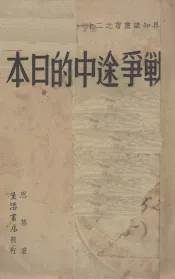 界知識叢書之二
戰爭途中的日本
思慕著
生活書店發行